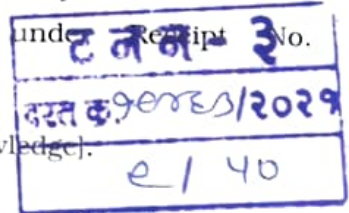 under Receipt No.
ट न न - ३
दस्त क्र. /२०२१
wledge].
९/ ५०